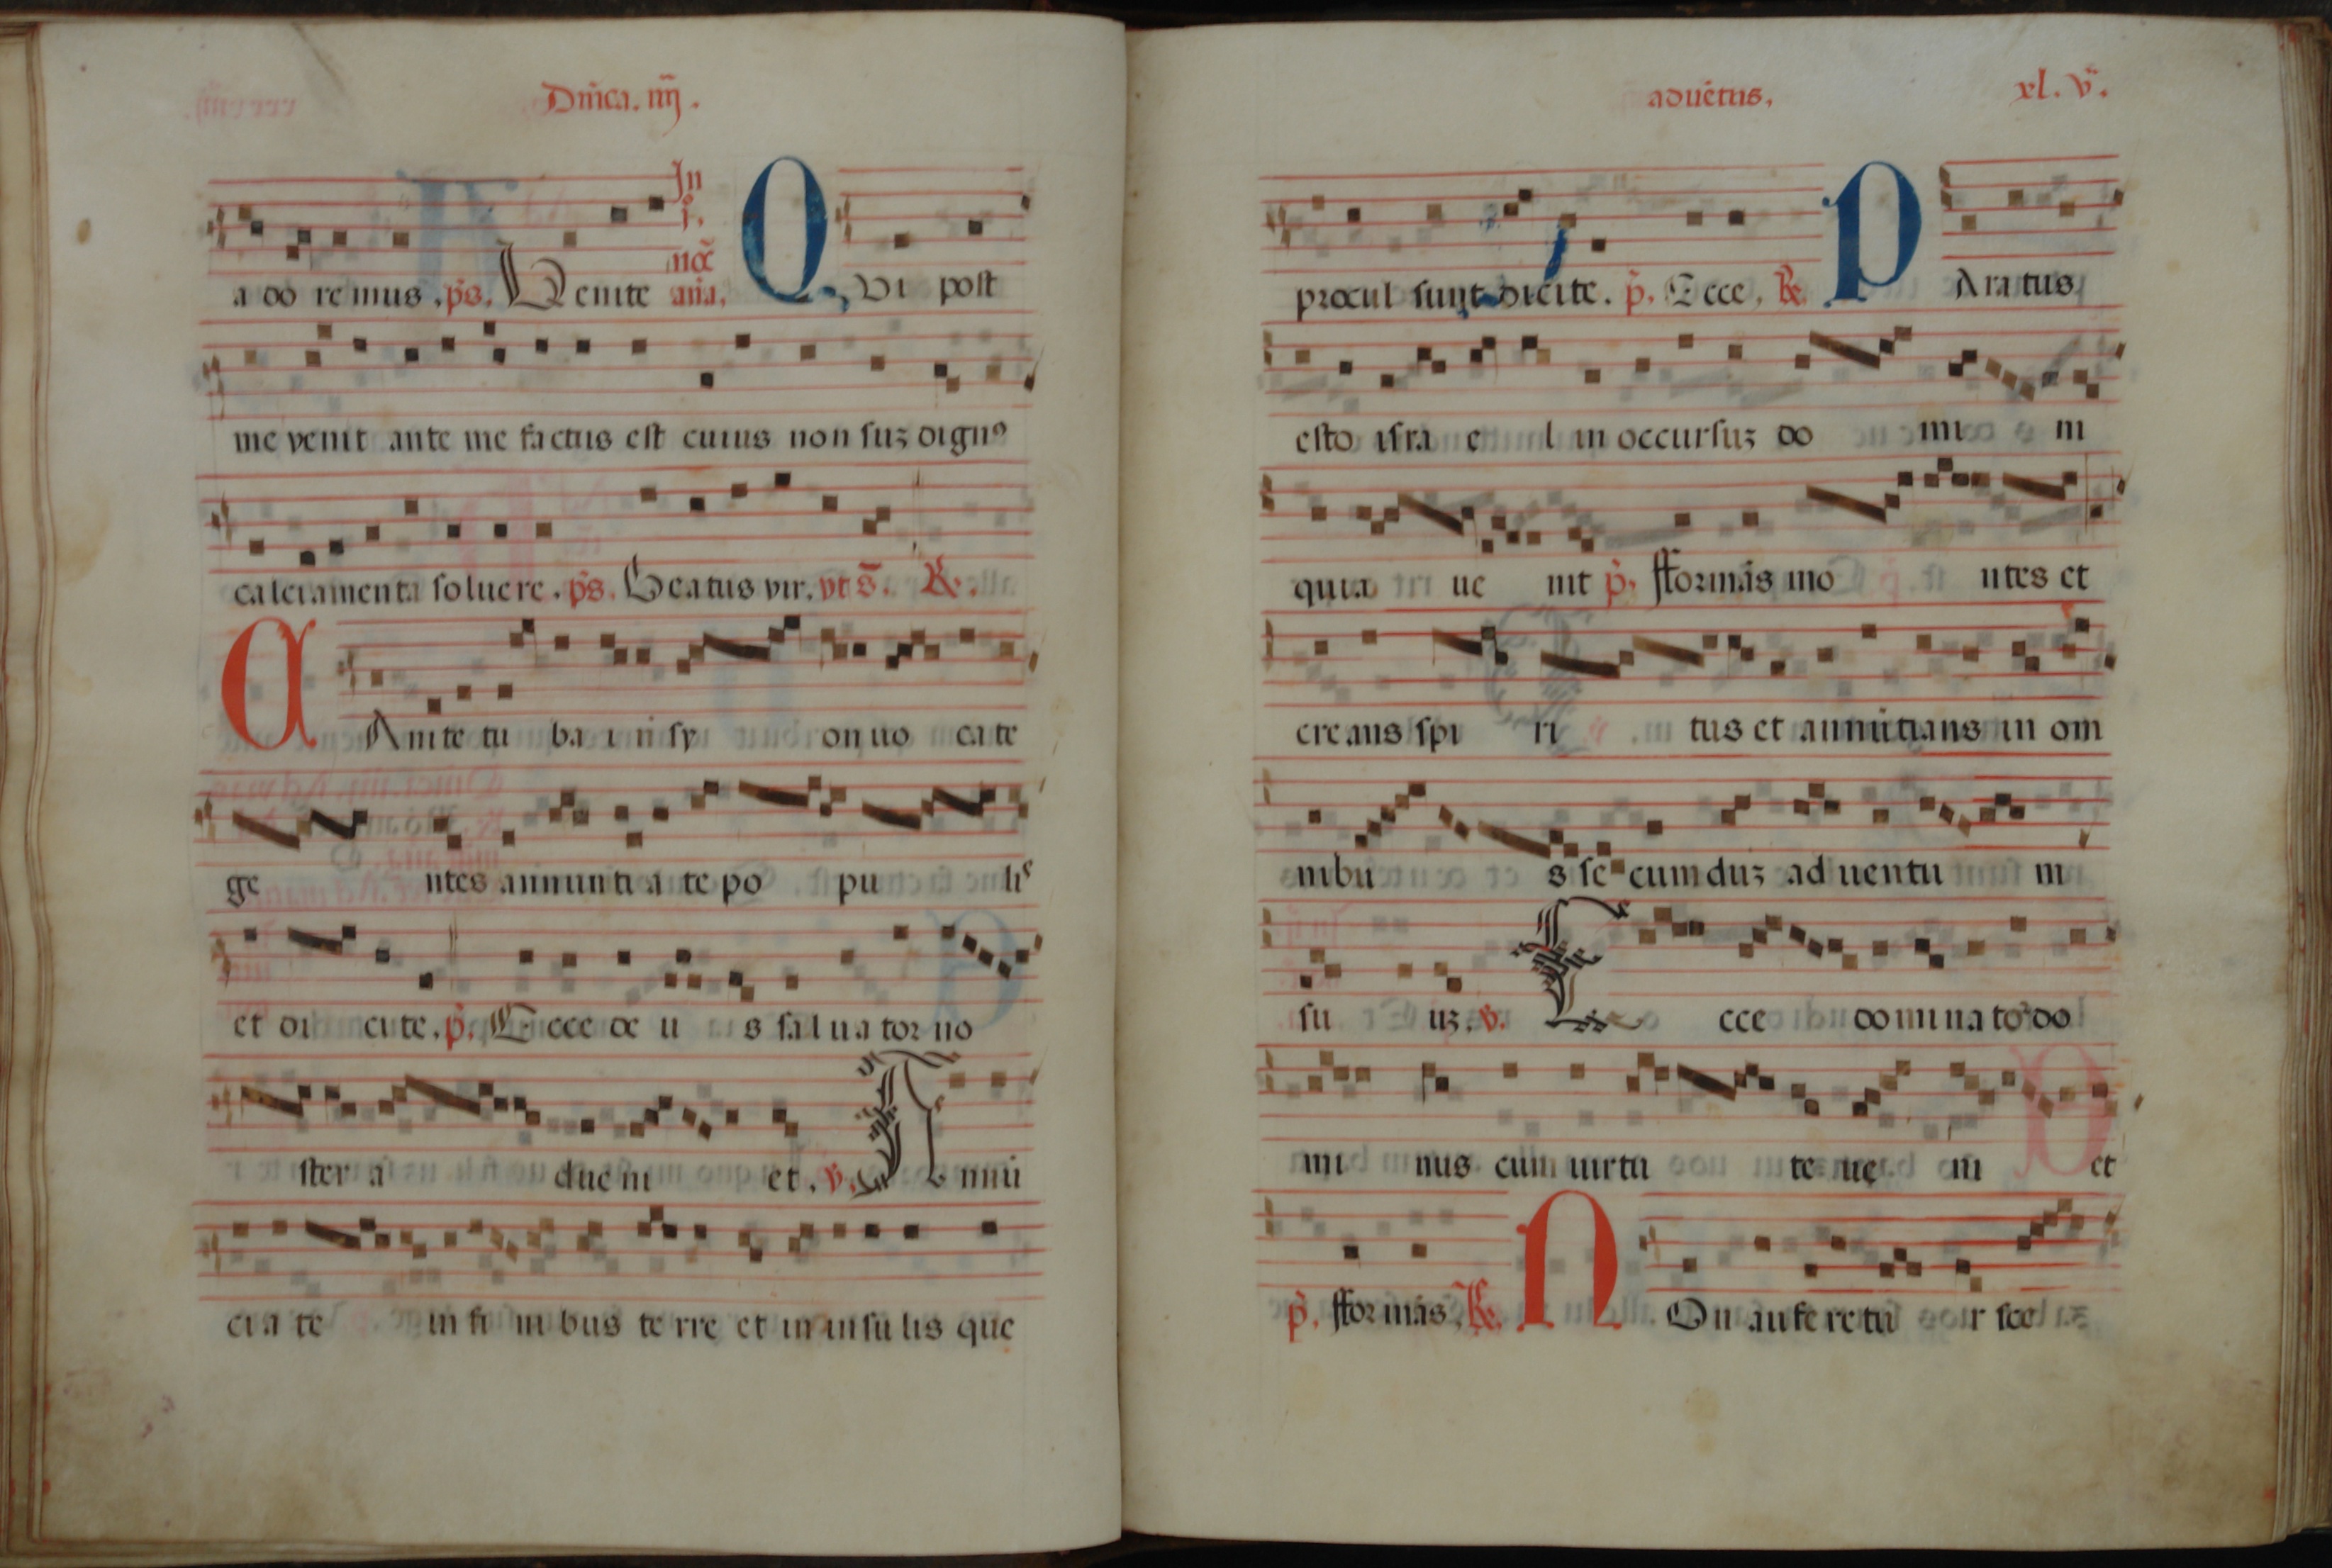 Dn̄ica. iiij.
In
i.
a do re mus. p̄s. Venite noc̄ an̄a. Q Vi post
me venit ante me factus est cuius non suꝫ dignꝰ
calciamenta soluere. p̄s. Beatus vir. vt s̄. ℟.
C Anite tu ba in sy on uo cate
ge ntes annunti a te po pu lis
et di cite. p̄. Ecce de u s saluator no
ster a dueni et. v. Annū
cia te in fi nibus te rre et in insulis que
aduētus. xl. v.
procul sunt dicite. p̄. Ecce. ℟. P Aratus
esto isra e l in occursuꝫ do mi ni
quia ue nit p̄. fformās mo ntes et
creans spi ri tus et annūtians in om
nibu s se cunduꝫ aduentu m
su uꝫ. v. Ecce dominator do
mi nus cum uirtu te ue ni et
p̄. ffor mās. ℟. N On auferetu r sce